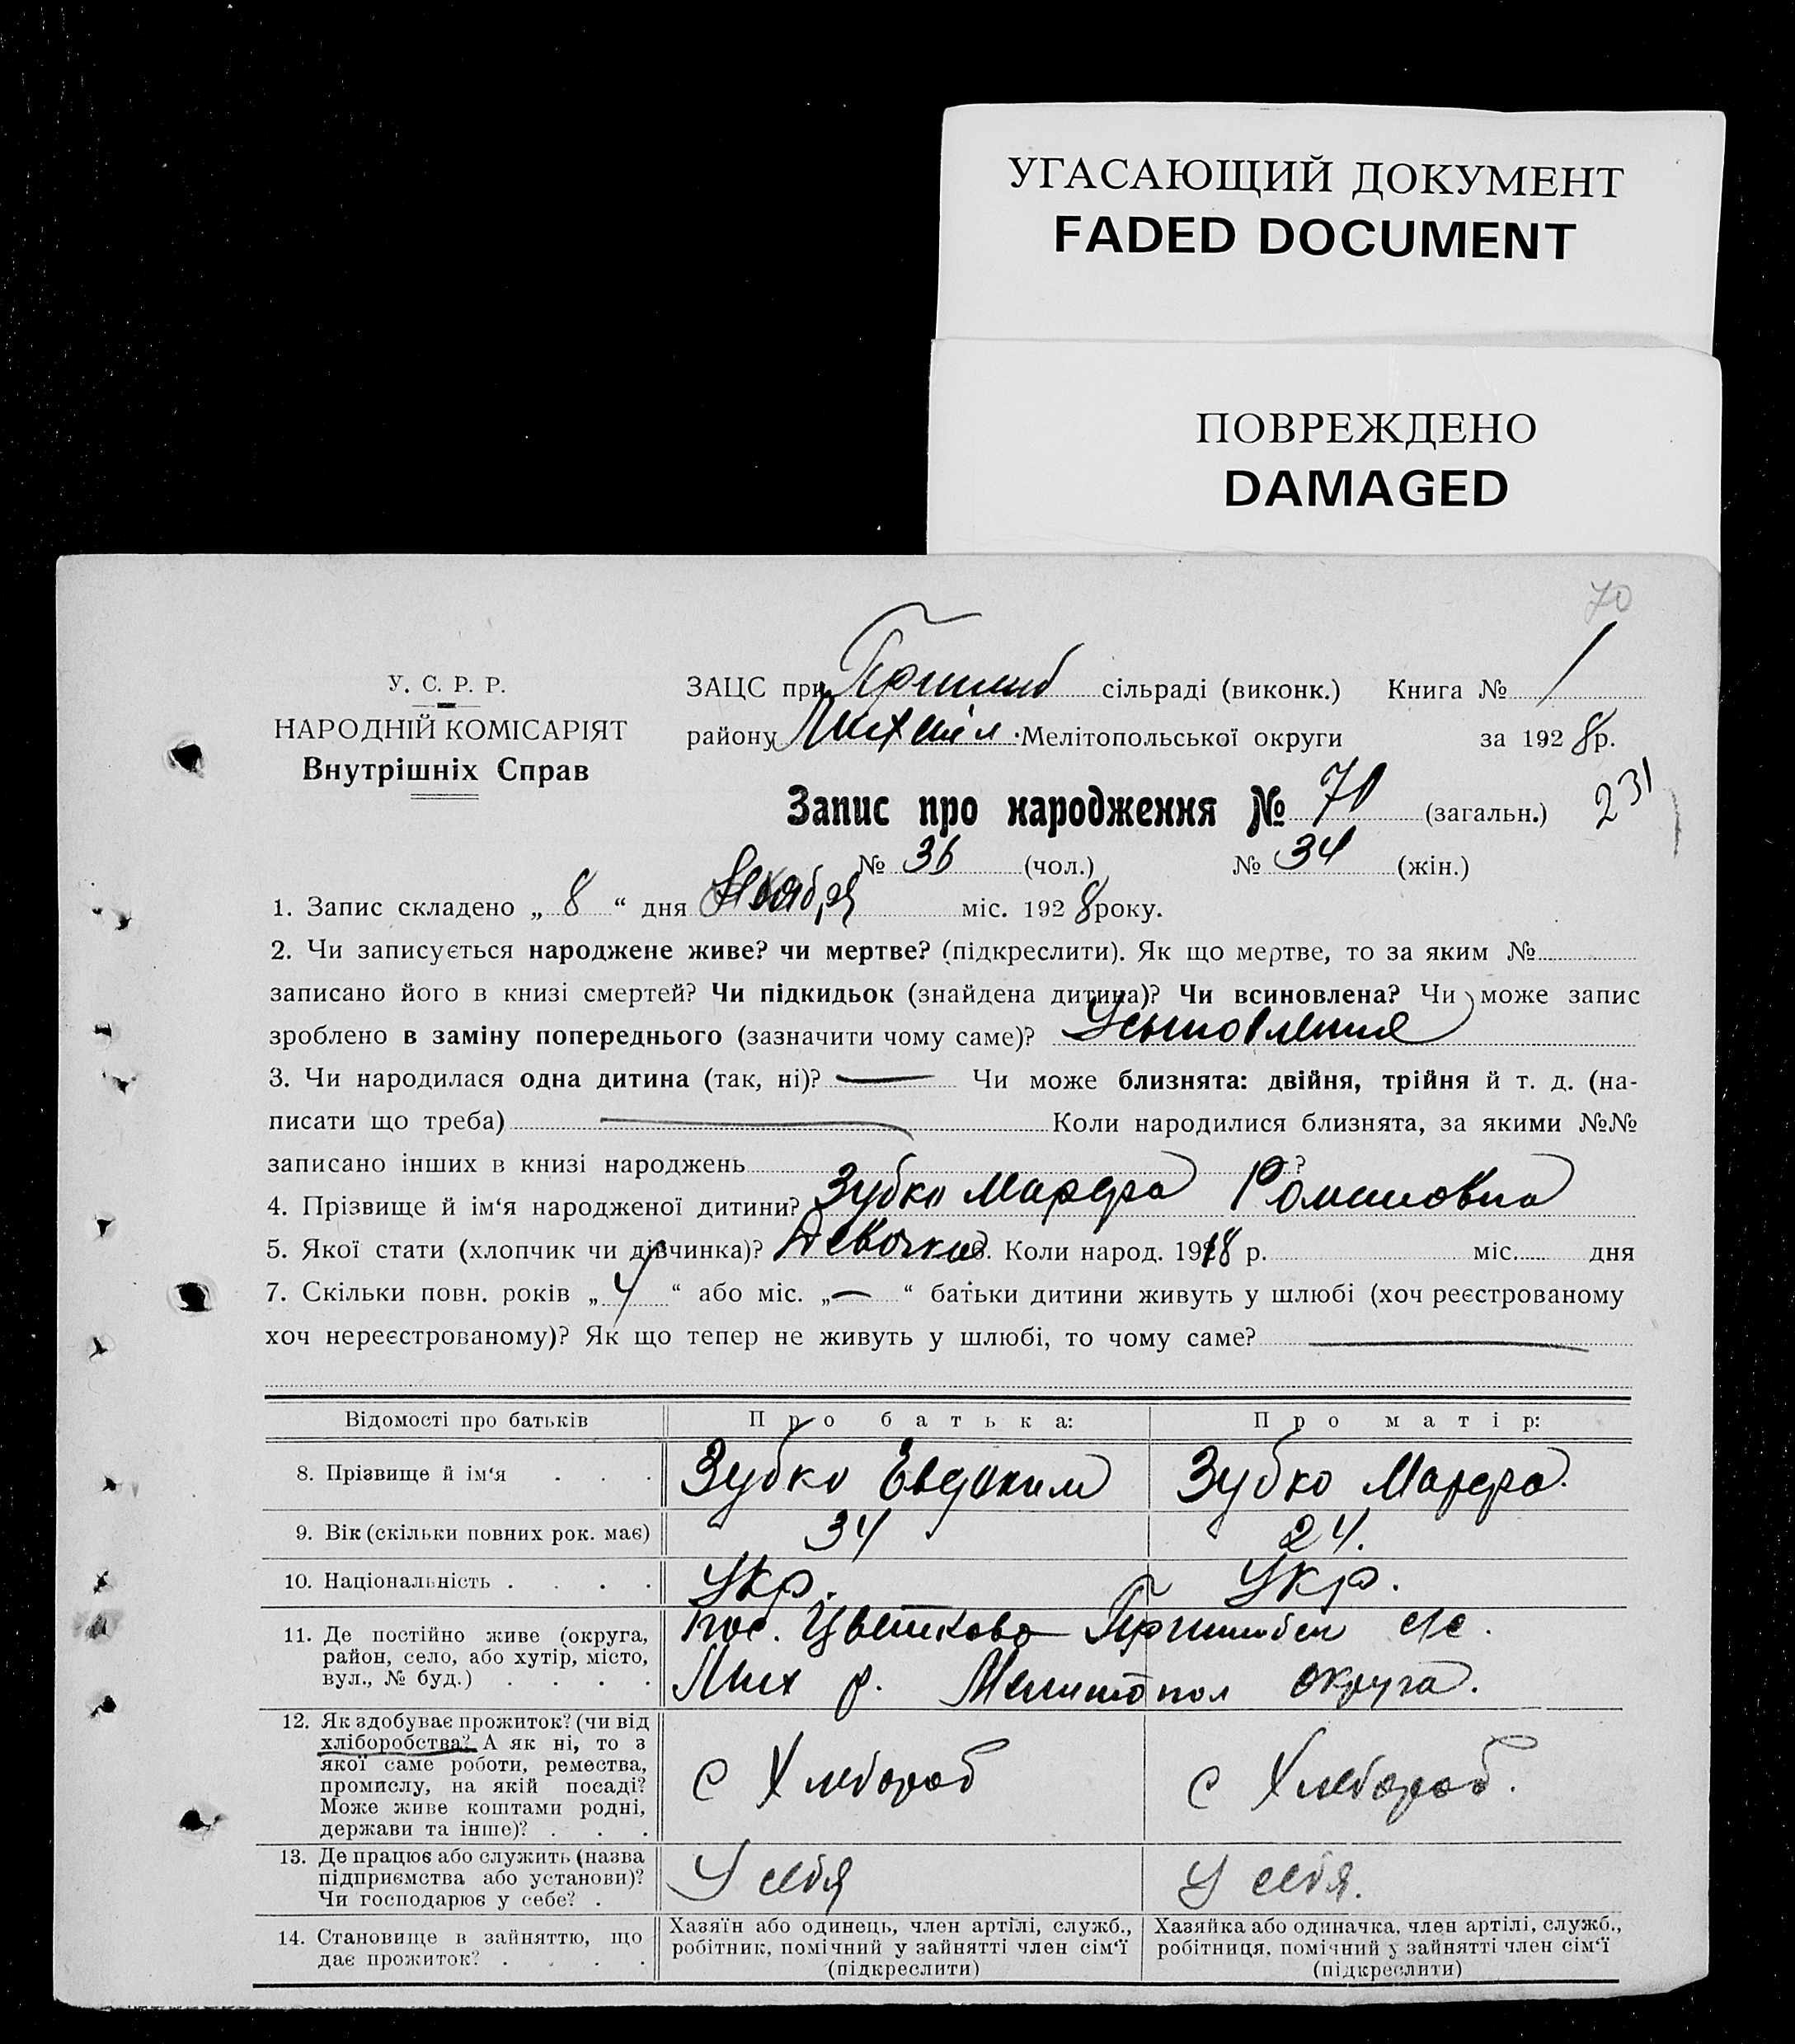 УГАСАЮЩИЙ ДОКУМЕНТ
FADED DOCUMENT
ПОВРЕЖДЕНО
DAMAGED
70
У. С. Р. Р.
НАРОДНІЙ КОМІСАРІЯТ
Внутрішніх Справ
ЗАЦС при Пришиб сільраді (виконк.) Книга № 1
району Михайл. Мелітопольської округи за 1928 р.
Запис про народження № 70 (загальн.) 231
№ 36 (чол.) № 34 (жін.)
1. Запис складено „ 8 “ дня міс. 1928 року.
2. Чи записується народжене живе? чи мертве? (підкреслити). Як що мертве, то за яким №
записано його в книзі смертей? Чи підкидьок (знайдена дитина)? Чи всиновлена? Чи може запис
зроблено в заміну попереднього (зазначити чому саме)? Усыновления
3. Чи народилася одна дитина (так, ні)? — Чи може близнята: двійня, трійня й т. д. (на-
писати що треба) — Коли народилися близнята, за якими №№
записано інших в книзі народжень ?
4. Прізвище й ім‘я народженої дитини? Зубко Марфа Романовна
5. Якої стати (хлопчик чи дівчинка)? Девочка 6. Коли народ. 1918 р. міс. дня
7. Скільки повн. років „ 4 “ або міс. „ — “ батьки дитини живуть у шлюбі (хоч реєстрованому
хоч нереєстрованому)? Як що тепер не живуть у шлюбі, то чому саме? —
Відомості про батьків Про батька: Про матір:
8. Прізвище й ім‘я . . . Зубко Евдоким Зубко Марфа.
9. Вік (скільки повних рок. має) 34 24.
10. Національність . . . . Укр. Укр.
11. Де постійно живе (округа,
район, село, або хутір, місто,
вул., № буд.) . . . .
пос. Цветково Пришибск с/с.
Мих р. Мелитопол округа.
12. Як здобуває прожиток? (чи від
хліборобства? А як ні, то з
якої саме роботи, ремества,
промислу, на якій посаді?
Може живе коштами родні,
держави та інше)? . . .
с Хлебороб с Хлебороб.
13. Де працює або служить (назва
підприємства або установи)?
Чи господарює у себе? .
У себя У себя.
14. Становище в зайняттю, що
дає прожиток? . . . .
Хазяїн або одинець, член артілі, служб.,
робітник, помічний у зайнятті член сім‘ї
(підкреслити)
Хазяйка або одиначка, член артілі, служб.,
робітниця, помічний у зайнятті член сім‘ї
(підкреслити)